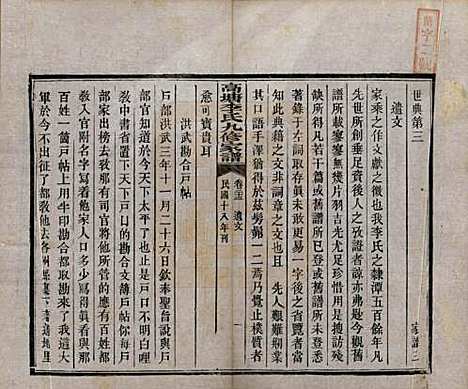 世典第三
遺文
家乘之作文獻之徵也我李氏之隸潭五百餘年凡
先世所創垂後人之攷證者諒亦弗尠迄今披閱舊
譜所載寥寥無幾片羽吉光尤足珍惜用與宗人商
骨于左詞取存眞未敢更易一字後之省覽者當
知此典籍之文非詞章之文也且先人艱難剏業
其口語手澤猶得於茲髣髴一二焉乃覺止樸質者
愈可寶貴耳
洪武勘合戶帖
高塘李氏九修家譜
卷三
遺文
一
民國十八年刊
戶部洪武三年十一月二十六日欽奉聖旨說與戶
部官知道於今天下太平了也止是戶口不明白俚
教中書省置下天下戶口的勘合文簿戶帖你每戶
部家出榜去教那有司官將他所管的應有百姓都
教入官附名字寫着他家人口多少寫得眞着與那
百姓一箇戶帖上用半印勘合都取勘來了我這大
軍於今不出征了都教他去各州縣裏下着遶地里